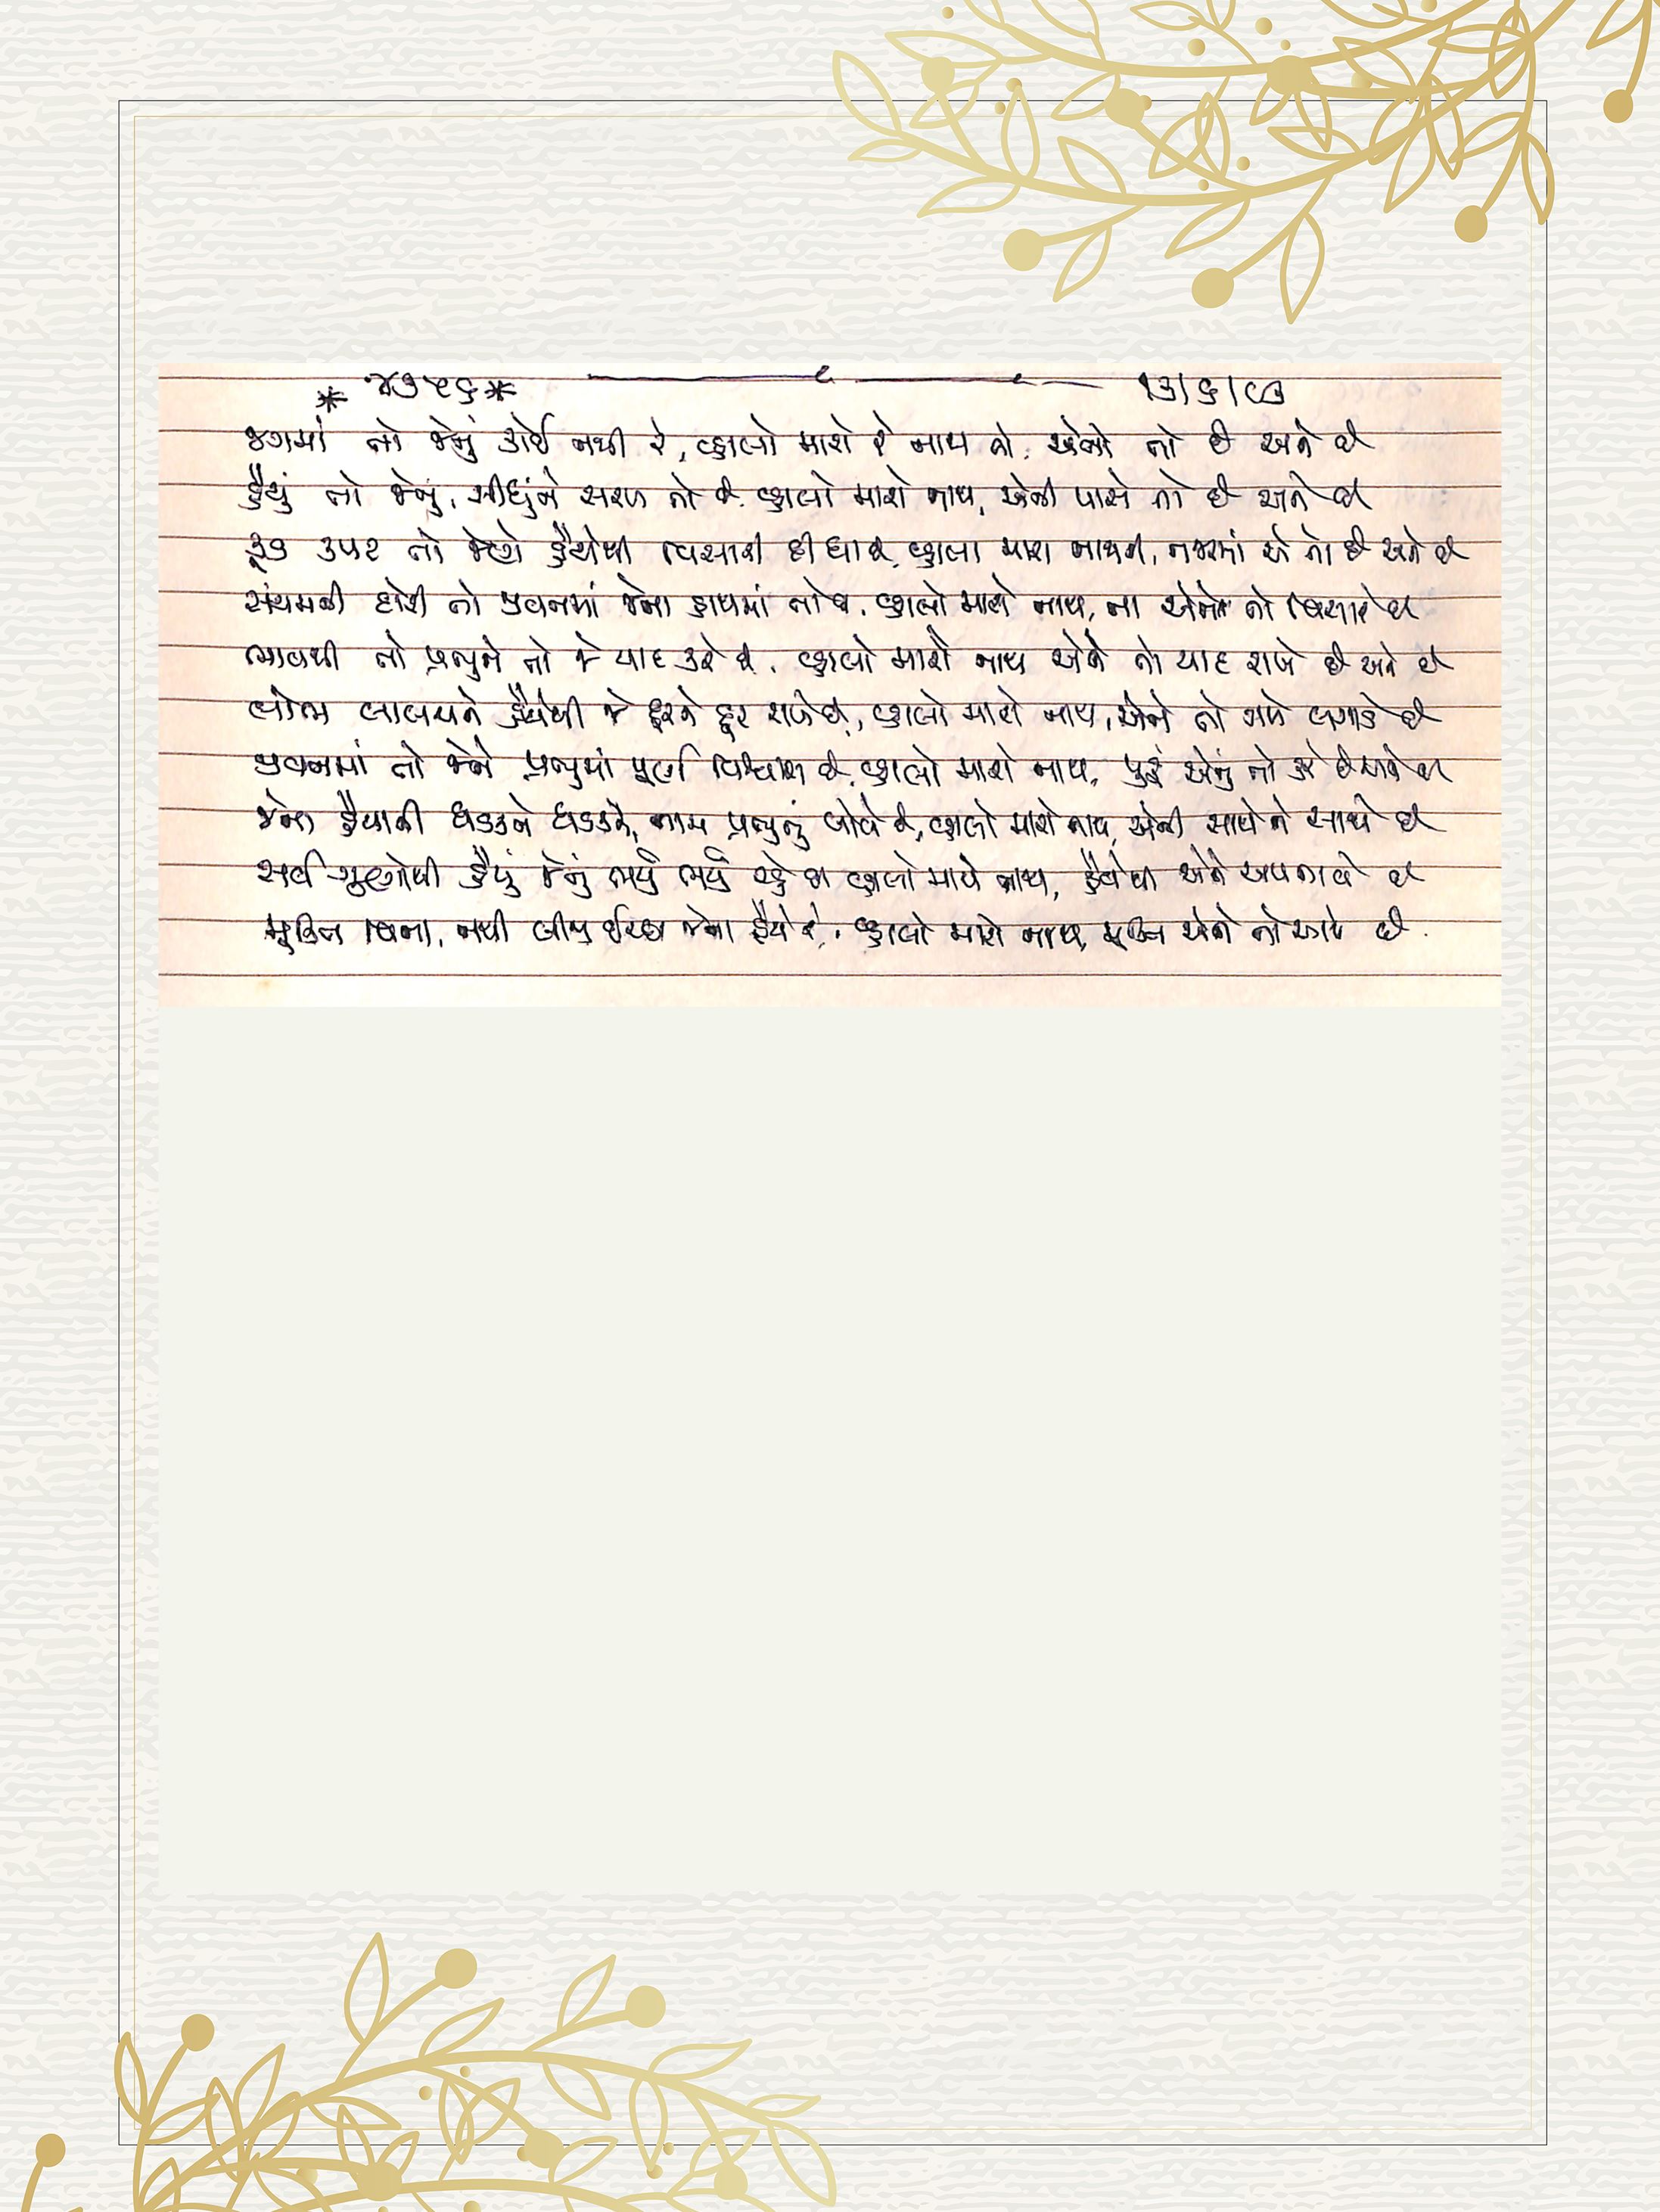 * ૪૭૫૬ * ૧૩/૬/૯૩
જગમાં તો જેનું કોઈ નથી રે, વ્હાલો મારો રે નાથ તો. એનો તો છે અને છે
હૈયું તો જેનું, સીધુંને સરળ તો છે. વ્હાલો મારો નાથ, એની પાસે તો છે અને છે
કૂડ કપટ તો જેણે હૈયેથી વિસારી દીધા છે, વ્હાલા મારા નાથની, નજરમાં એ તો છે અને છે
સંયમની દોરી તો જીવનમાં જેના હાથમાં તો છે. વ્હાલો મારો નાથ, ના એને તો વિસારે છે
ભાવથી તો પ્રભુને તો જે યાદ કરે છે. વ્હાલો મારો નાથ એને તો યાદ રાખે છે અને છે
લોભ લાલચને હૈયેથી જે દૂરને દૂર રાખે છે, વ્હાલો મારો નાથ, એને તો ગળે લગાડે છે
જીવનમાં તો જેને પ્રભુમાં પૂર્ણ વિશ્વાસ છે, વ્હાલો મારો નાથ, પૂરું એનું તો કરે છે અને છે
જેના હૈયાની ધડકને ધડકને, નામ પ્રભુનું બોલે છે, વ્હાલો મારો નાથ, એની સાથેને સાથે છે
સર્વ ગુણોથી હૈયું જેનું ભર્યું ભર્યું રહે છે વ્હાલો મારો નાથ, હૈયેથી એને અપનાવે છે
મુક્તિ વિના, નથી બીજી ઈચ્છા જેના હૈયે રે, વ્હાલો મારો નાથ, મુક્તિ એને તો આપે છે.